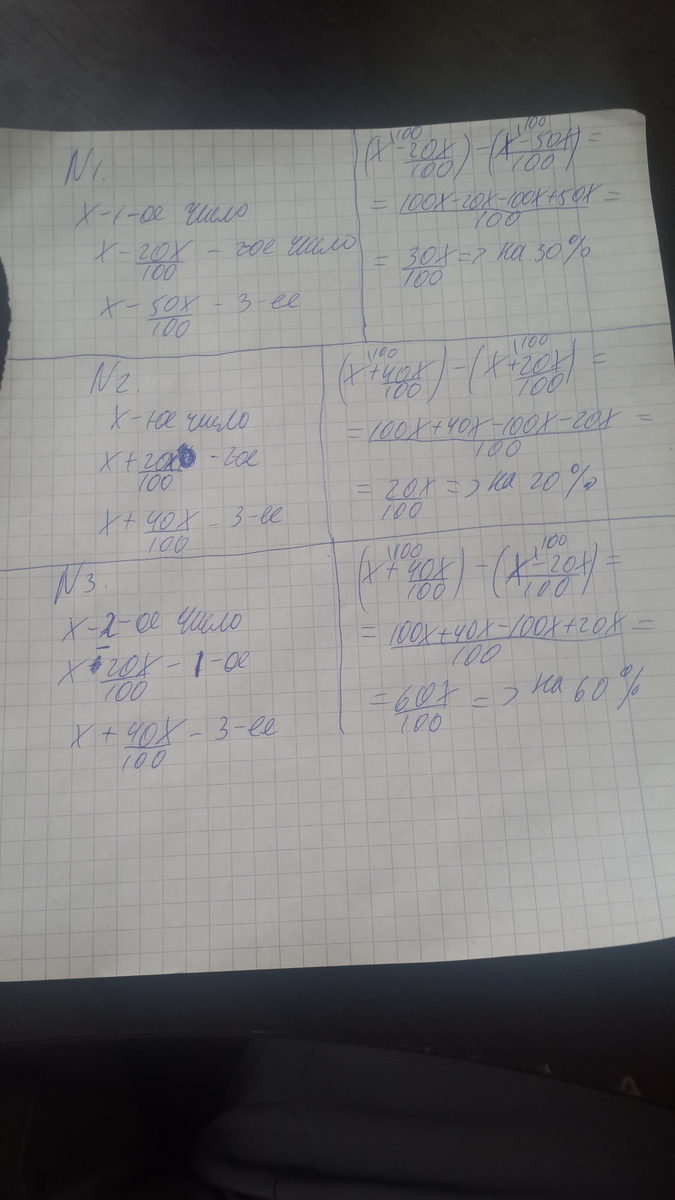 N1.
x-1-ое число
x - 20x/100 - 2ое число
x - 50x/100 - 3-ее
(x^100 - 20x/100) - (x^100 - 50x/100) =
= 100x-20x-100x+50x/100 =
= 30x/100 => на 30%
N2.
x-1ое число
x + 20x/100 - 2ое
x + 40x/100 - 3-ее
(x^100 + 40x/100) - (x^100 + 20x/100) =
= 100x+40x-100x-20x/100 =
= 20x/100 => на 20%
N3.
x-2-ое число
x - 20x/100 - 1-ое
x + 40x/100 - 3-ее
(x^100 + 40x/100) - (x^100 - 20x/100) =
= 100x+40x-100x+20x/100 =
= 60x/100 => на 60%